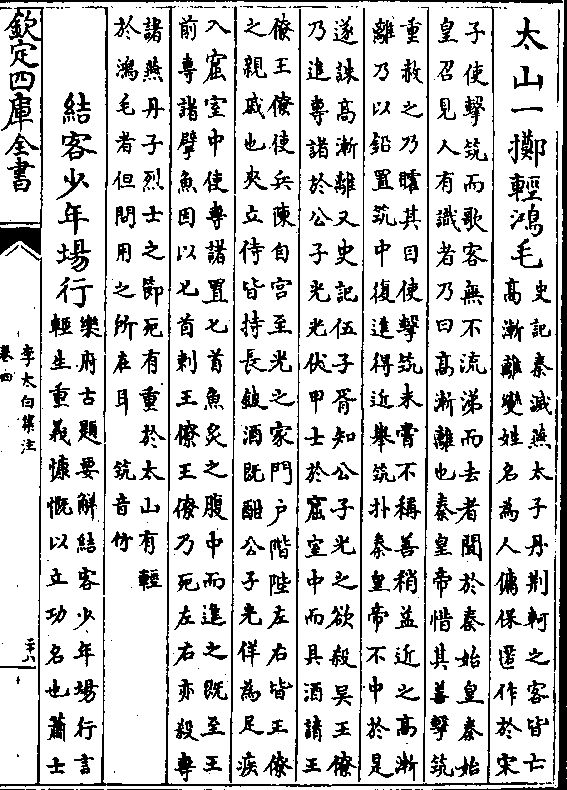 太山一擲輕鴻毛
史記秦滅燕太子丹荆軻之客皆亡
高漸離變姓名為人傭保匿作於宋
子使擊筑而歌客無不流涕而去者聞於秦始皇秦始
皇召見人有識者乃曰高漸離也秦皇帝惜其善擊筑
重赦之乃矐其目使擊筑未嘗不稱善稍益近之高漸
離乃以鉛置筑中復進得近舉筑扑秦皇帝不中於是
遂誅高漸離又史記伍子胥知公子光之欲殺吴王僚
乃進專諸於公子光光伏甲士於窟室中而具酒請王
僚王僚使兵陳自宫至光之家門户階陛左右皆王僚
之親戚也夾立侍皆持長鈹酒既酣公子光佯為足疾
入窟室中使專諸置匕首魚炙之腹中而進之既至王
前專諸擘魚因以匕首刺王僚王僚乃死左右亦殺專
諸燕丹子烈士之節死有重於太山有輕
於鴻毛者但問用之所在耳 筑音竹
結客少年場行
樂府古題要解結客少年場行言
輕生重義慷慨以立功名也蕭士
欽定四庫全書
李太白集注
卷四
二十八